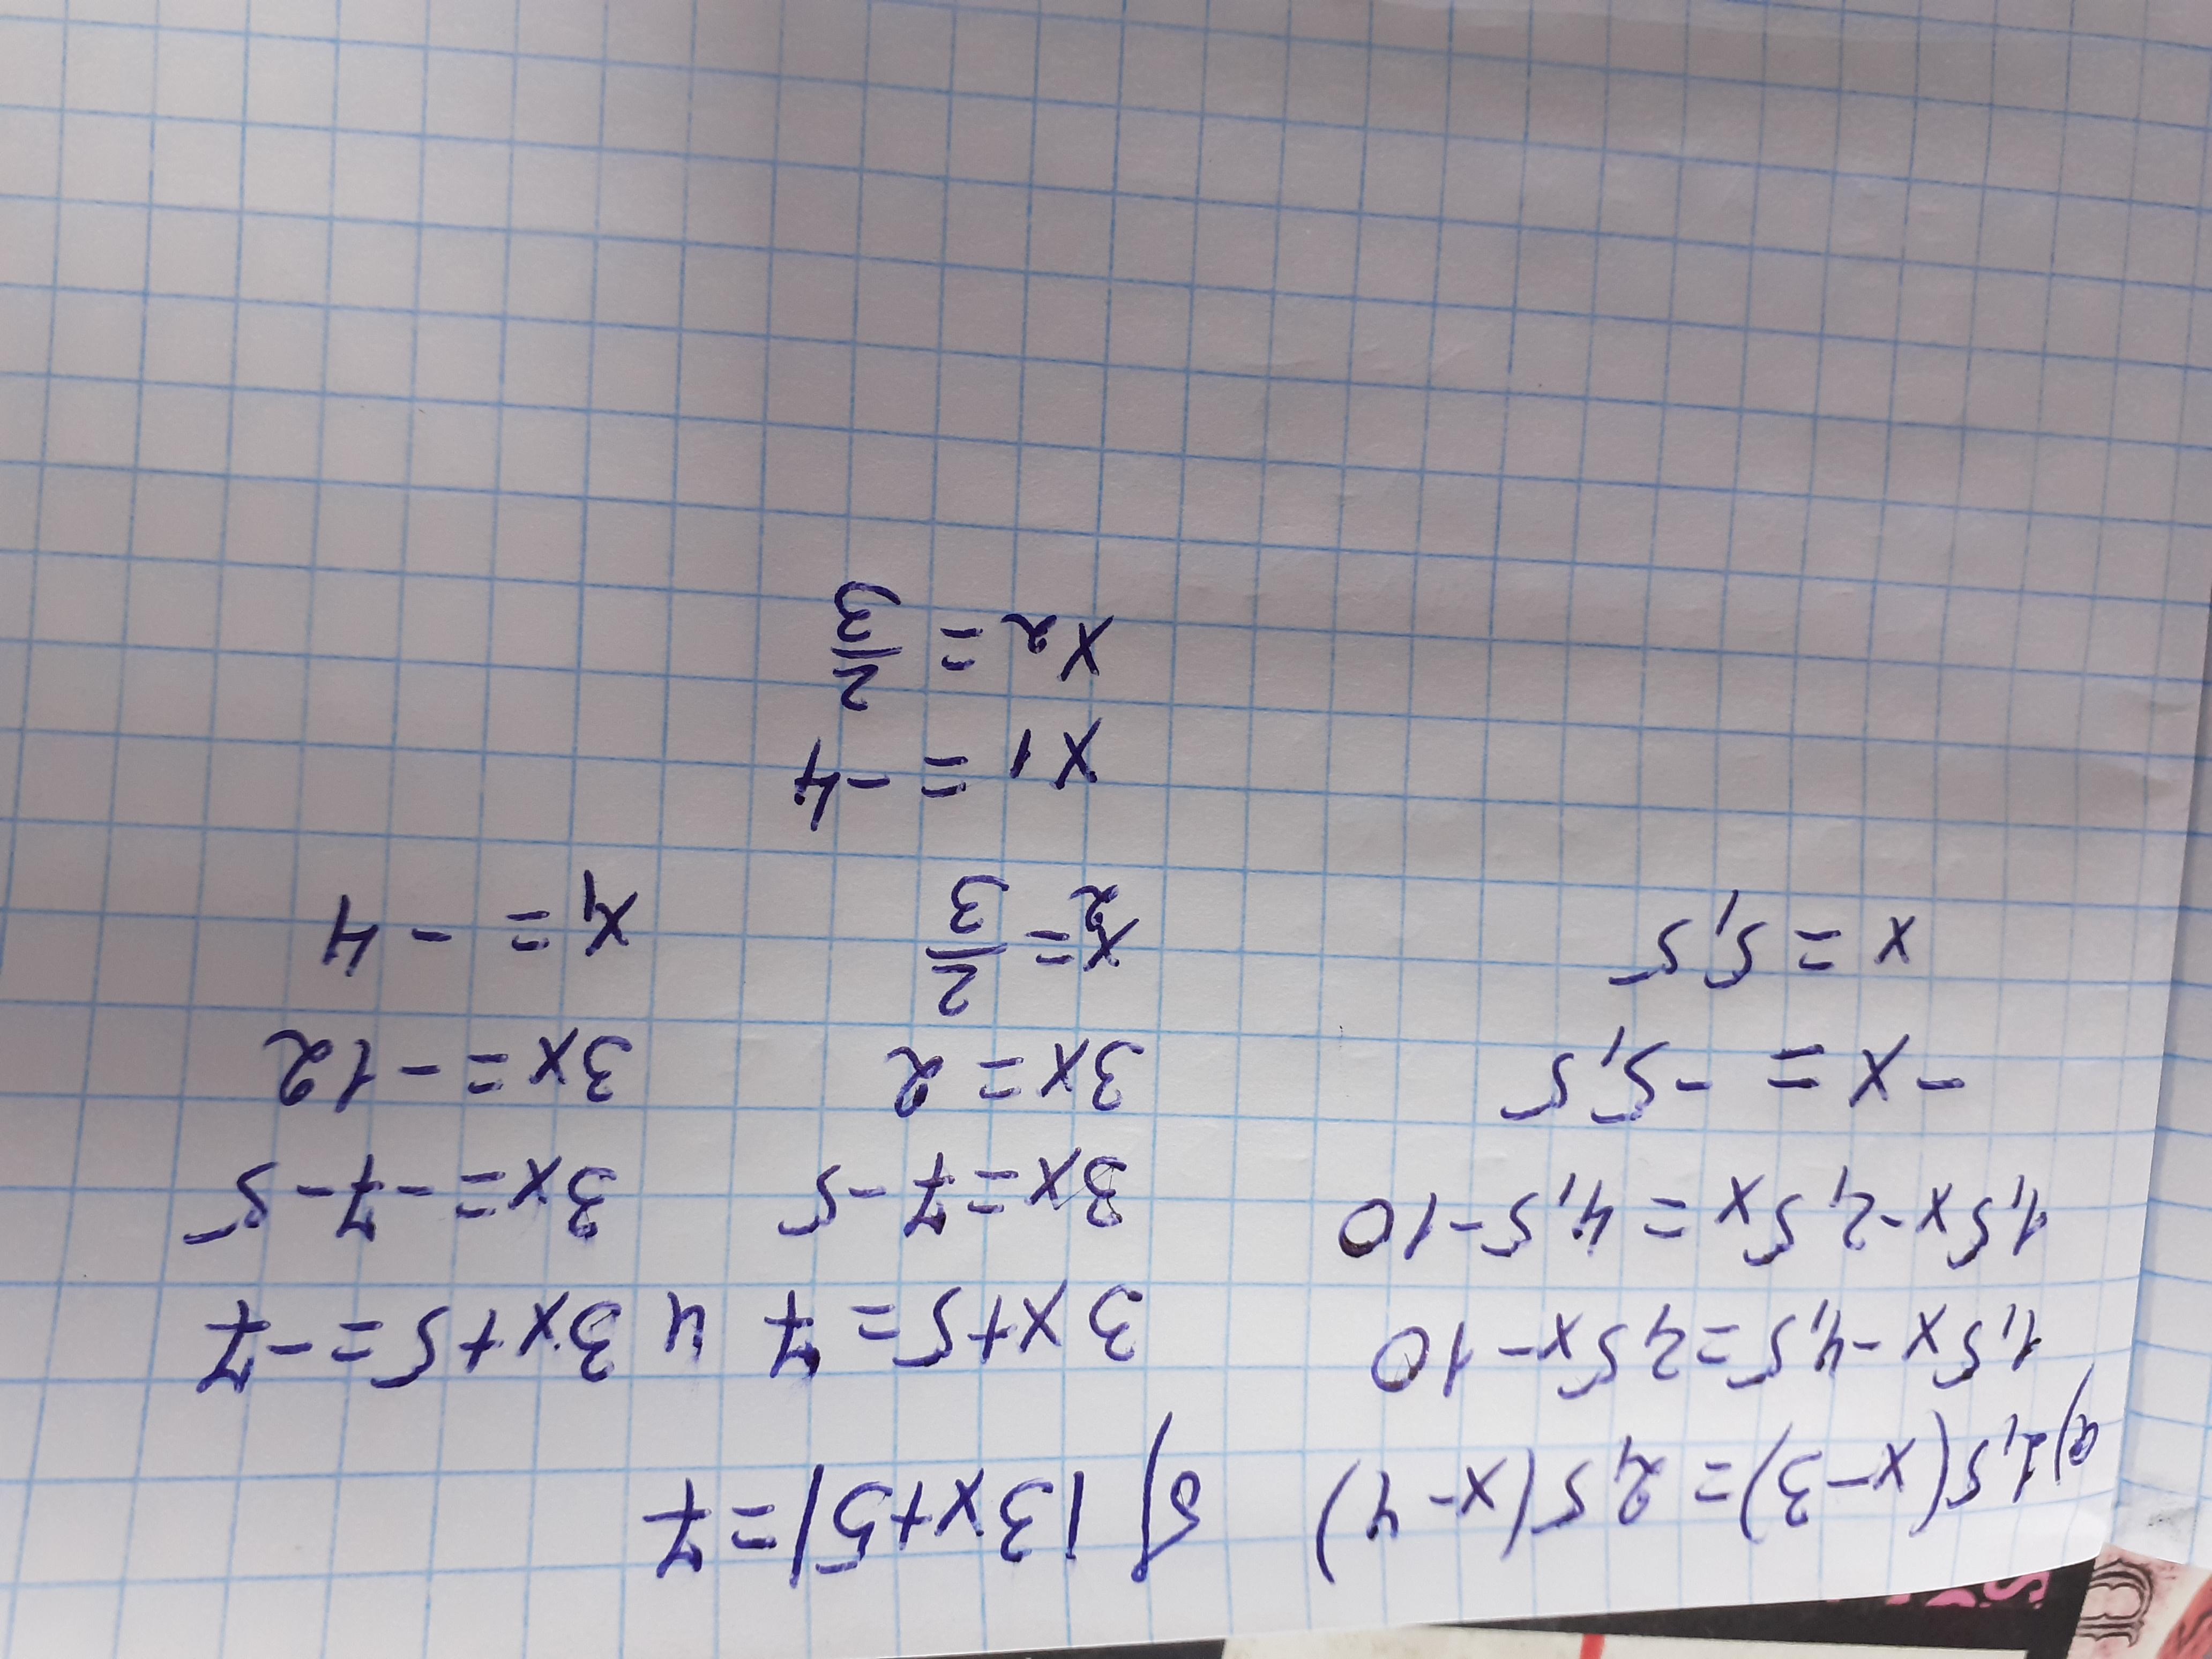 а) 1,5(x-3)=2,5(x-4)
1,5x-4,5=2,5x-10
1,5x-2,5x=4,5-10
-x=-5,5
x=5,5
б) |3x+5|=7
3x+5=7 и 3x+5=-7
3x=7-5 3x=-7-5
3x=2 3x=-12
x₂=2/3 x₁=-4
x1=-4
x₂=2/3